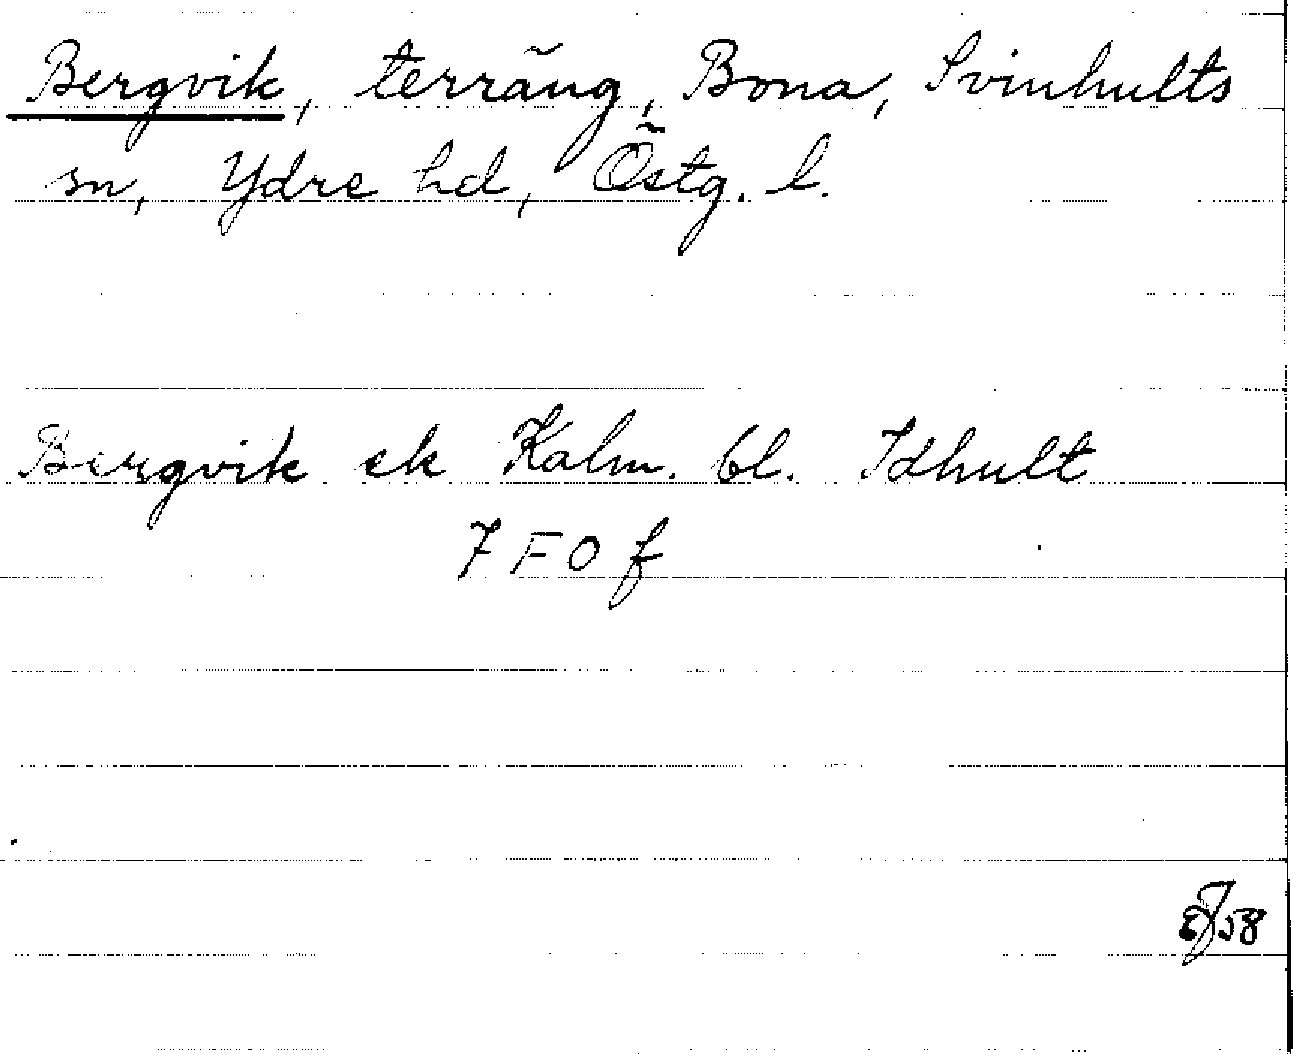 Bergvik, terräng, Bona, Svinhults
sn, Ydre hd, Östg. l.
Bergvik ek Kalm. bl. Idhult
7 F 0 f
58